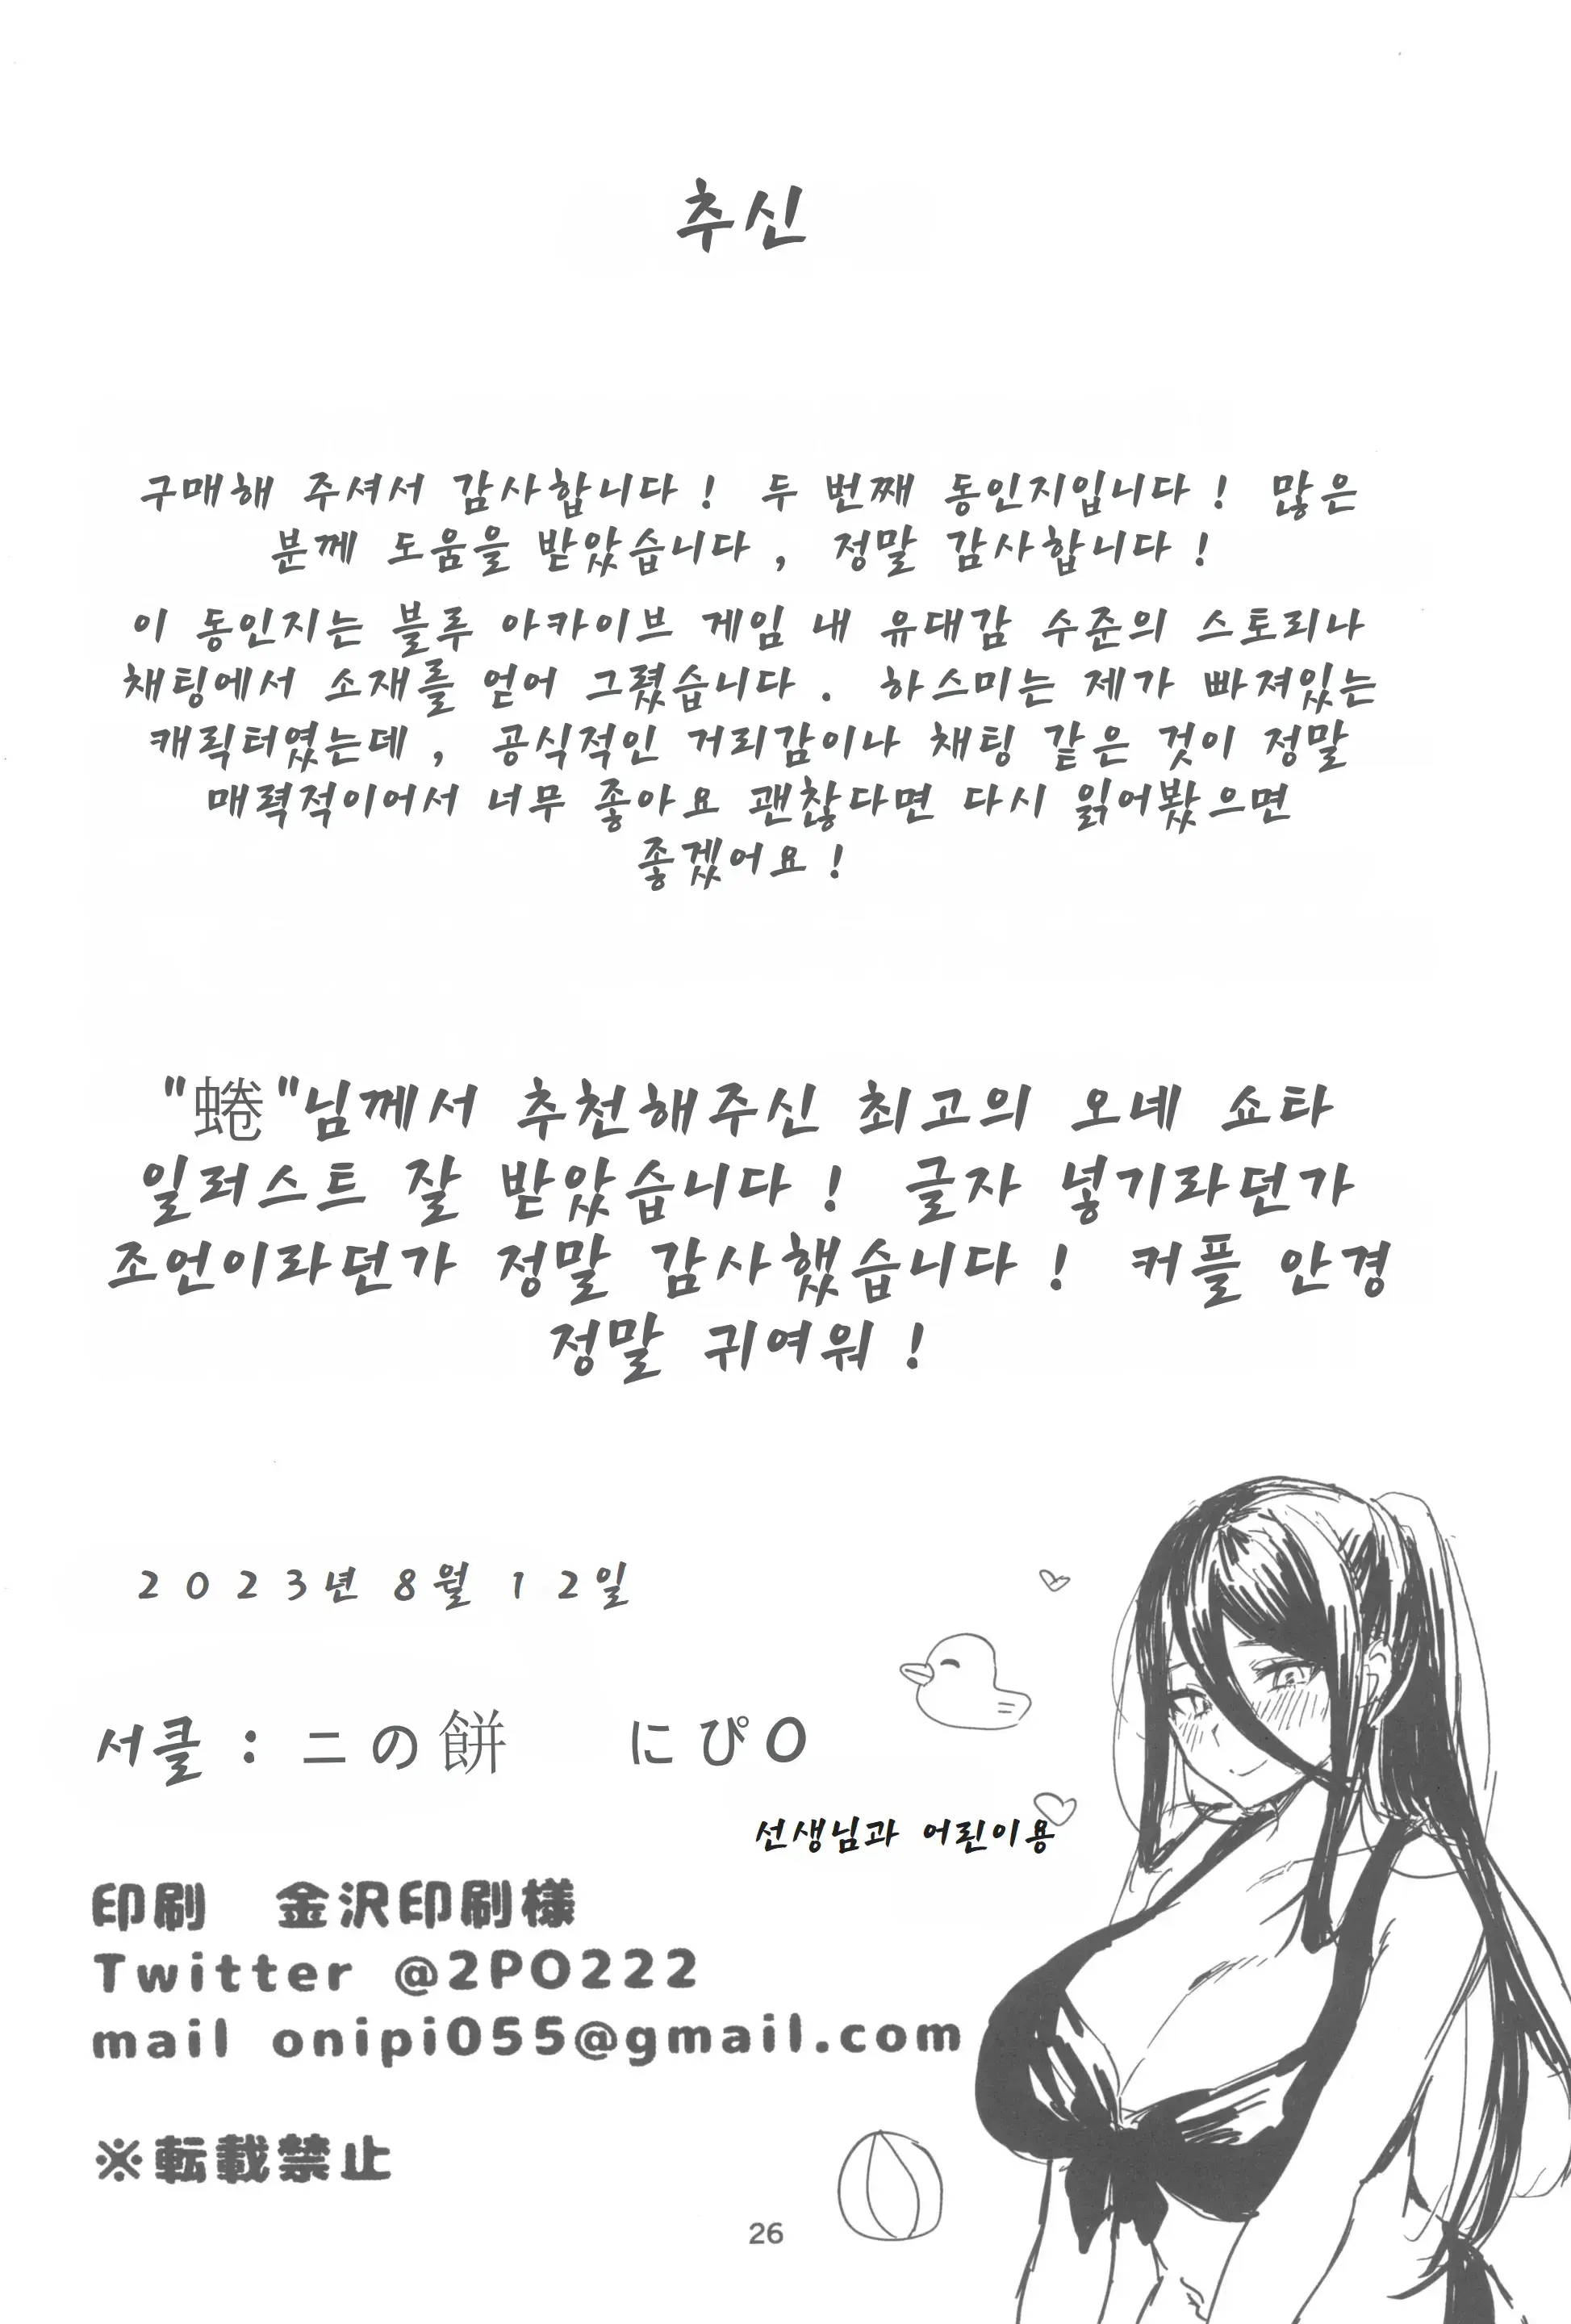 추신
구매해 주셔서 감사합니다! 두 번째 동인지입니다! 많은
분께 도움을 받았습니다, 정말 감사합니다!
이 동인지는 블루 아카이브 게임 내 유대감 수준의 스토리나
채팅에서 소재를 얻어 그렸습니다. 하스미는 제가 빠져있는
캐릭터였는데, 공식적인 거리감이나 채팅 같은 것이 정말
매력적이어서 너무 좋아요 괜찮다면 다시 읽어봤으면
좋겠어요!
"蜷"님께서 추천해주신 최고의 오네 쇼타
일러스트 잘 받았습니다! 글자 넣기라던가
조언이라던가 정말 감사했습니다! 커플 안경
정말 귀여워!
2023년 8월 12일
서클 : ニの餅 にぴO
선생님과 어린이용
印刷 金沢印刷様
Twitter @2PO222
mail onipi055@gmail.com
※転載禁止
26